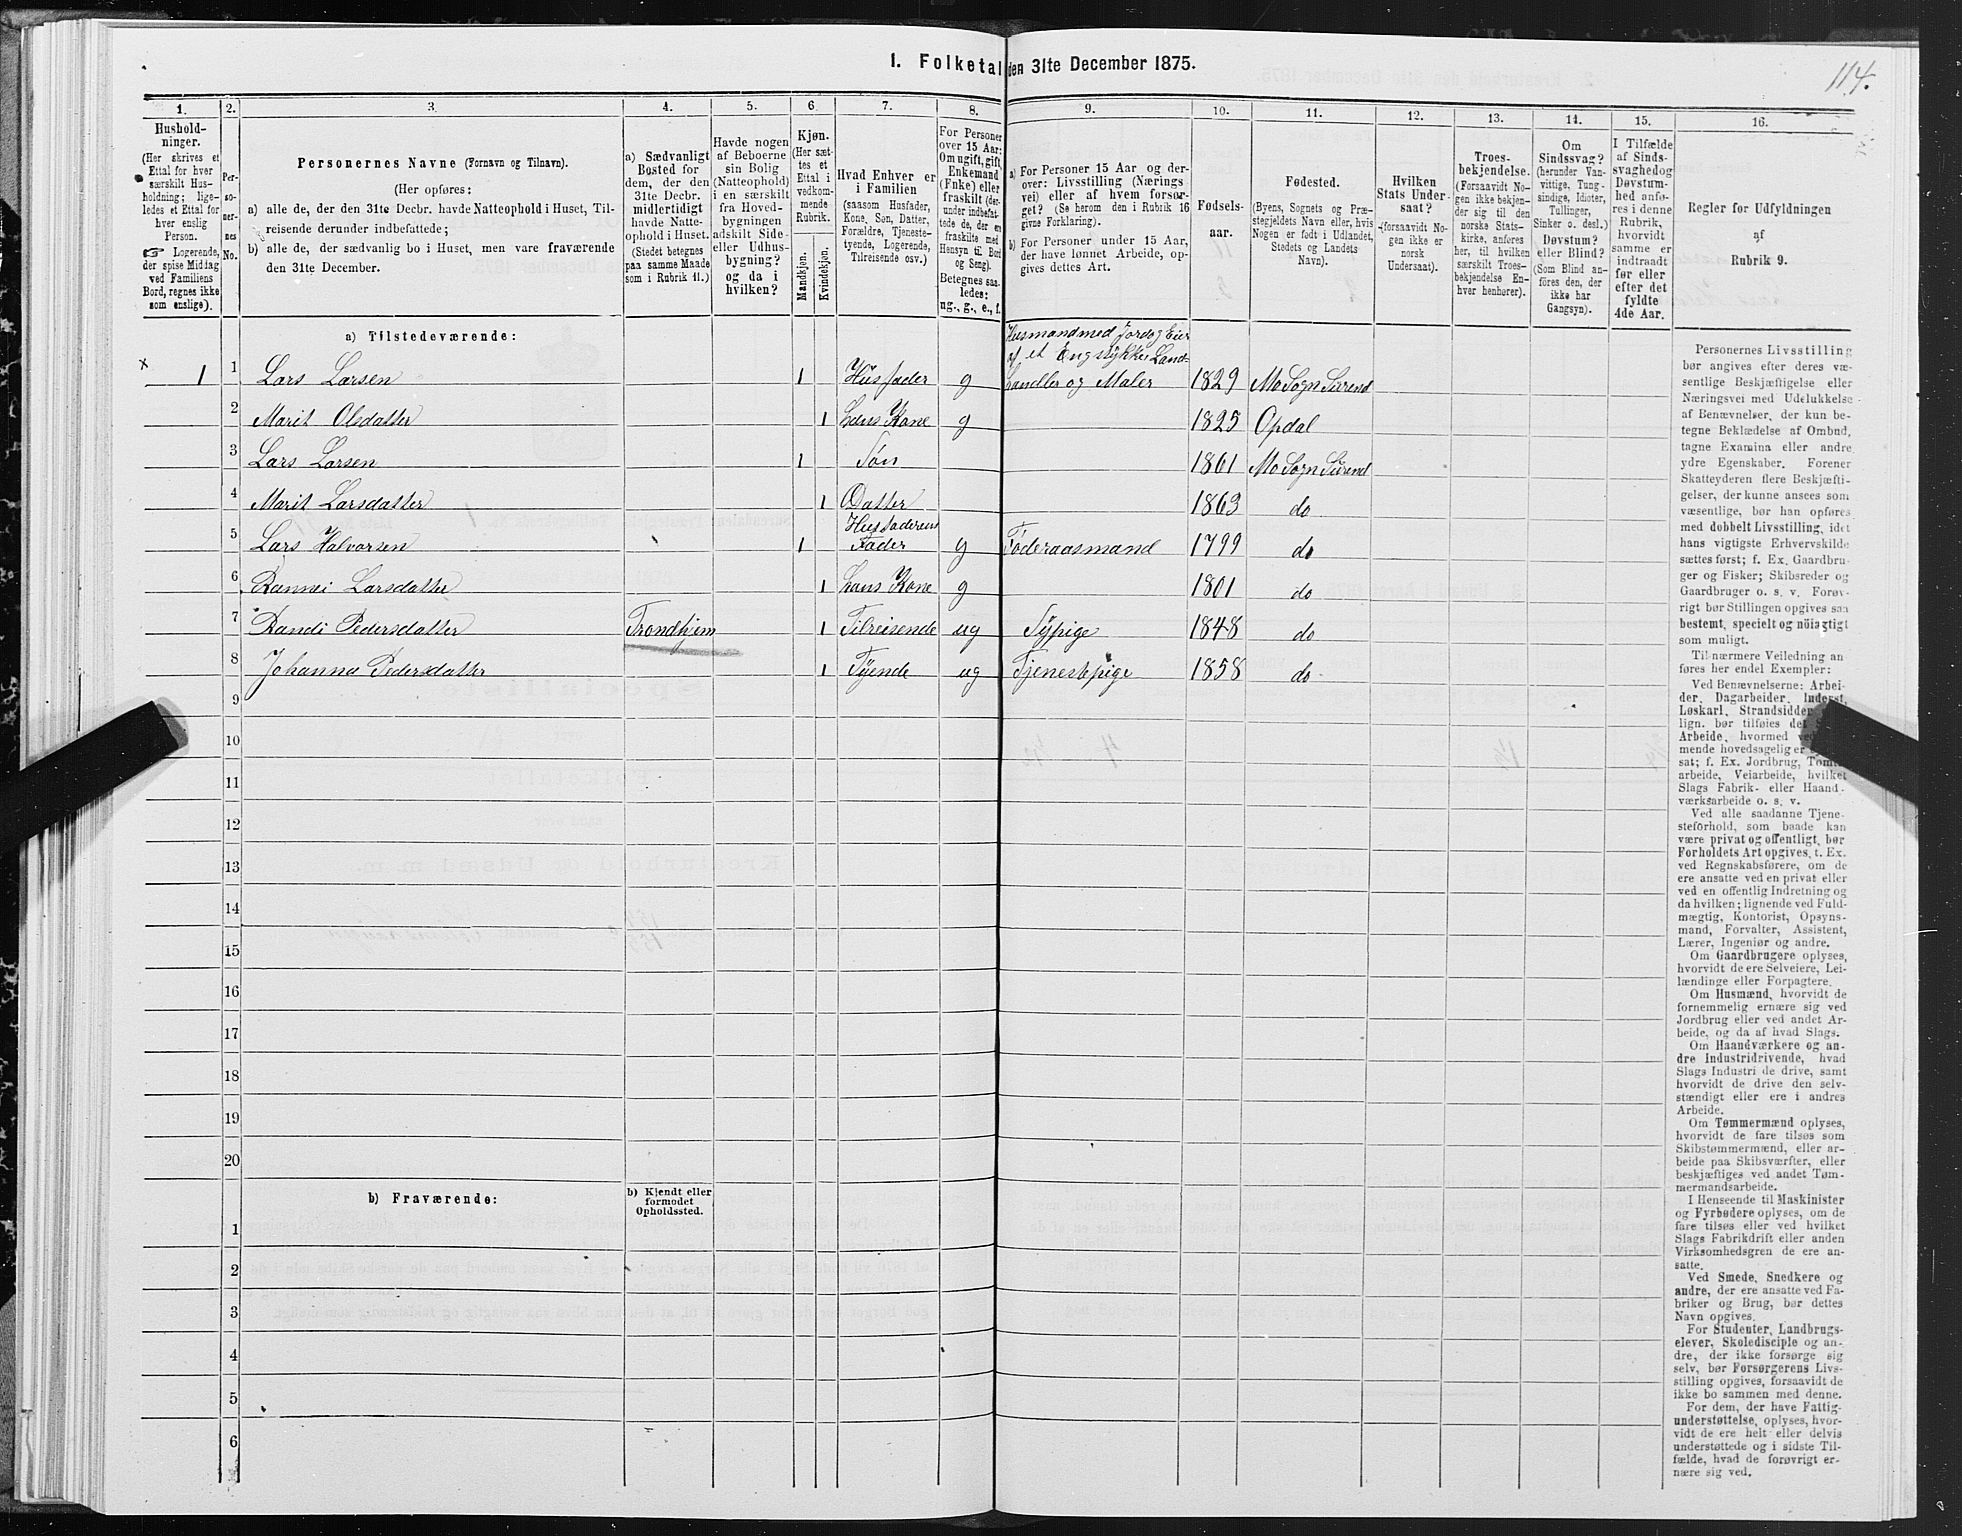 1. Folketal den 31te December 1875.
114.
1.
Hushold-
ninger.
(Her skrives et
Ettal for hver
særskilt Hus-
holdning; lige-
ledes et Ettal for
hver enslig
Person.
☞ Logerende,
der spise Middag
ved Familiens
Bord, regnes ikke
som enslige).
2.
Per-
so-
ner-
nes
No.
3.
Personernes Navne (Fornavn og Tilnavn).
(Her opføres:
a) alle de, der den 31te Decbr. havde Natteophold i Huset, Til-
reisende derunder indbefattede;
b) alle de, der sædvanlig bo i Huset, men vare fraværende
den 31te December.
4.
a) Sædvanligt
Bosted for
dem, der den
31te Decbr.
midlertidigt
havde Natte-
ophold i Huset.
(Stedet betegnes
paa samme Maade
som i Rubrik 11.)
5.
Havde nogen
af Beboerne
sin Bolig
(Natteophold)
i en særskilt
fra Hoved-
bygningen
adskilt Side-
eller Udhus-
bygning?
og da i
hvilken?
6.
Kjøn.
(Her sæt-
tes et
Ettal i
vedkom-
mende
Rubrik.
Mandkjøn.
Kvindekjøn.
7.
Hvad Enhver er
i Familien
(saasom Husfader,
Kone, Søn, Datter,
Forældre, Tjeneste-
tyende, Logerende,
Tilreisende osv.)
8.
For Personer
over 15 Aar:
Om ugift, gift,
Enkemand
(Enke) eller
fraskilt (der-
under indbefat-
tede de, der ere
fraskilte med
Hensyn til Bord
og Seng).
Betegnes saa-
ledes:
ug., g., e., f.
9.
a) For Personer 15 Aar og der-
over: Livsstilling (Nærings
vei) eller af hvem forsør-
get? (Se herom den i Rubrik 16
givne Forklaring).
b) For Personer under 15 Aar,
der have lønnet Arbeide, op-
gives dettes Art.
10.
Fødsels-
aar.
11.
Fødested.
(Byens, Sognets og Præ-
stegjeldets Navn eller, hvis
Nogen er født i Udlandet,
Stedets og Landets
Navn).
12.
Hvilken
Stats Under-
saat?
(forsaavidt No-
gen ikke er
norsk
Undersaat).
13.
Troes-
bekjendelse.
(Forsaavidt No-
gen ikke bekjen-
der sig til den
norske Stats-
kirke, anføres
her, til hvilken
særskilt Troes-
bekjendelse En-
hver henhører).
14.
Om
Sindssvag?
(herunder Van-
vittige, Tung-
sindige, Idioter,
Tullinger,
Sinker o. desl.)
Døvstum?
eller Blind?
(Som Blind an-
føres den, der
ikke har
Gangsyn).
15.
I Tilfælde
af Sinds-
svaghed og
Døvstum-
hed anfø-
res i denne
Rubrik,
hvorvidt
samme er
indtraadt
før eller
efter det
fyldte
4de Aar.
16.
Regler for Udfyldningen
af
Rubrik 9.
a) Tilstedeværende:
Husmand med Jord og Eier
af et Engstykke Land-
x 1 1 Lars Larsen 1 Husfader g handler og Maler 1829 Mo Sogn Surend
2 Marit Olsdatter 1 hans Kone g 1825 Opdal
3 Lars Larsen 1 Søn 1861 Mo Sogn Surend
4 Marit Larsdatter 1 Datter 1863 do
Husfaderens
5 Lars Halvorsen 1 Fader g Føderaasmand 1799 do
6 Rannei Larsdatter 1 hans Kone g 1801 do
7 Randi Pedersdatter Trondhjem 1 Tilreisende ug Sypige 1848 do
8 Johanna Pedersdatter 1 Tyende ug Tjenestepige 1858 do
9
10
11
12
13
14
15
16
17
18
19
20
b) Fraværende:
b) Kjendt eller
formodet
Opholdssted.
1
2
3
4
5
6
Personernes Livsstilling
bør angives efter deres væ-
sentlige Beskjæftigelse eller
Næringsvei med Udelukkelse
af Benævnelser, der kun be-
tegne Beklædelse af Ombud,
tagne Examina eller andre
ydre Egenskaber. Forener
Skatteyderen flere Beskjæfti-
gelser, der kunne ansees som
væsentlige, bør han opføres
med dobbelt Livsstilling, idet
hans vigtigste Erhvervskilde
sættes først; f. Ex. Gaardbru-
ger og Fisker; Skibsreder og
Gaardbruger o. s. v. Forøv-
rigt bør Stillingen opgives saa
bestemt, specielt og nøiagtigt
som muligt.
Til nærmere Veiledning an
føres her endel Exempler:
Ved Benævnelserne: Arbei-
der, Dagarbeider, Inderst,
Løskarl, Strandsidder
lign. bør tilføies det S
Arbeide, hvormed ved
mende hovedsagelig er
sat; f. Ex. Jordbrug, Tomte
arbeide, Veiarbeide, hvilket
Slags Fabrik- eller Haand
værksarbeide o. s. v.
Ved alle saadanne Tjene-
steforhold, som baade kan
være privat og offentligt, bør
Forholdets Art opgives, t. Ex.
ved Regnskabsførere, om de
ere ansatte ved en privat eller
ved en offentlig Indretning og
da hvilken; lignende ved Fuld-
mægtig, Kontorist, Opsyns-
mand, Forvalter, Assistent,
Lærer, Ingeniør og andre.
Om Gaardbrugere oplyses,
hvorvidt de ere Selveiere, Lei-
lændinge eller Forpagtere.
Om Husmænd, hvorvidt de
fornemmelig ernære sig ved
Jordbrug eller ved andet Ar-
beide, og da af hvad Slags.
Om Haandværkere og an-
dre Industridrivende, hvad
Slags Industri de drive, samt
hvorvidt de drive den selv-
stændigt eller ere i andres
Arbeide.
Om Tømmermænd oplyses,
hvorvidt de fare tilsøs som
Skibstømmermænd, eller ar-
beide paa Skibsværfter, eller
beskjæftiges ved andet Tøm-
mermandsarbeide.
I Henseende til Maskinister
og Fyrbødere oplyses, om de
fare tilsøs eller ved hvilket
Slags Fabrikdrift eller anden
Virksomhedsgren de ere an-
satte.
Ved Smede, Snedkere og
andre, der ere ansatte ved Fa-
briker og Brug, bør dettes
Navn opgives.
For Studenter, Landbrugs-
elever, Skoledisciple og an-
dre, der ikke forsørge sig
selv, bør Forsørgerens Livs-
stilling opgives, forsaavidt de
ikke bo sammen med denne.
For dem, der have Fattig-
understøttelse, oplyses, hvor-
vidt de ere helt eller delvis
understøttede og i sidste Til-
fælde, hvad de forøvrigt er-
nære sig ved.